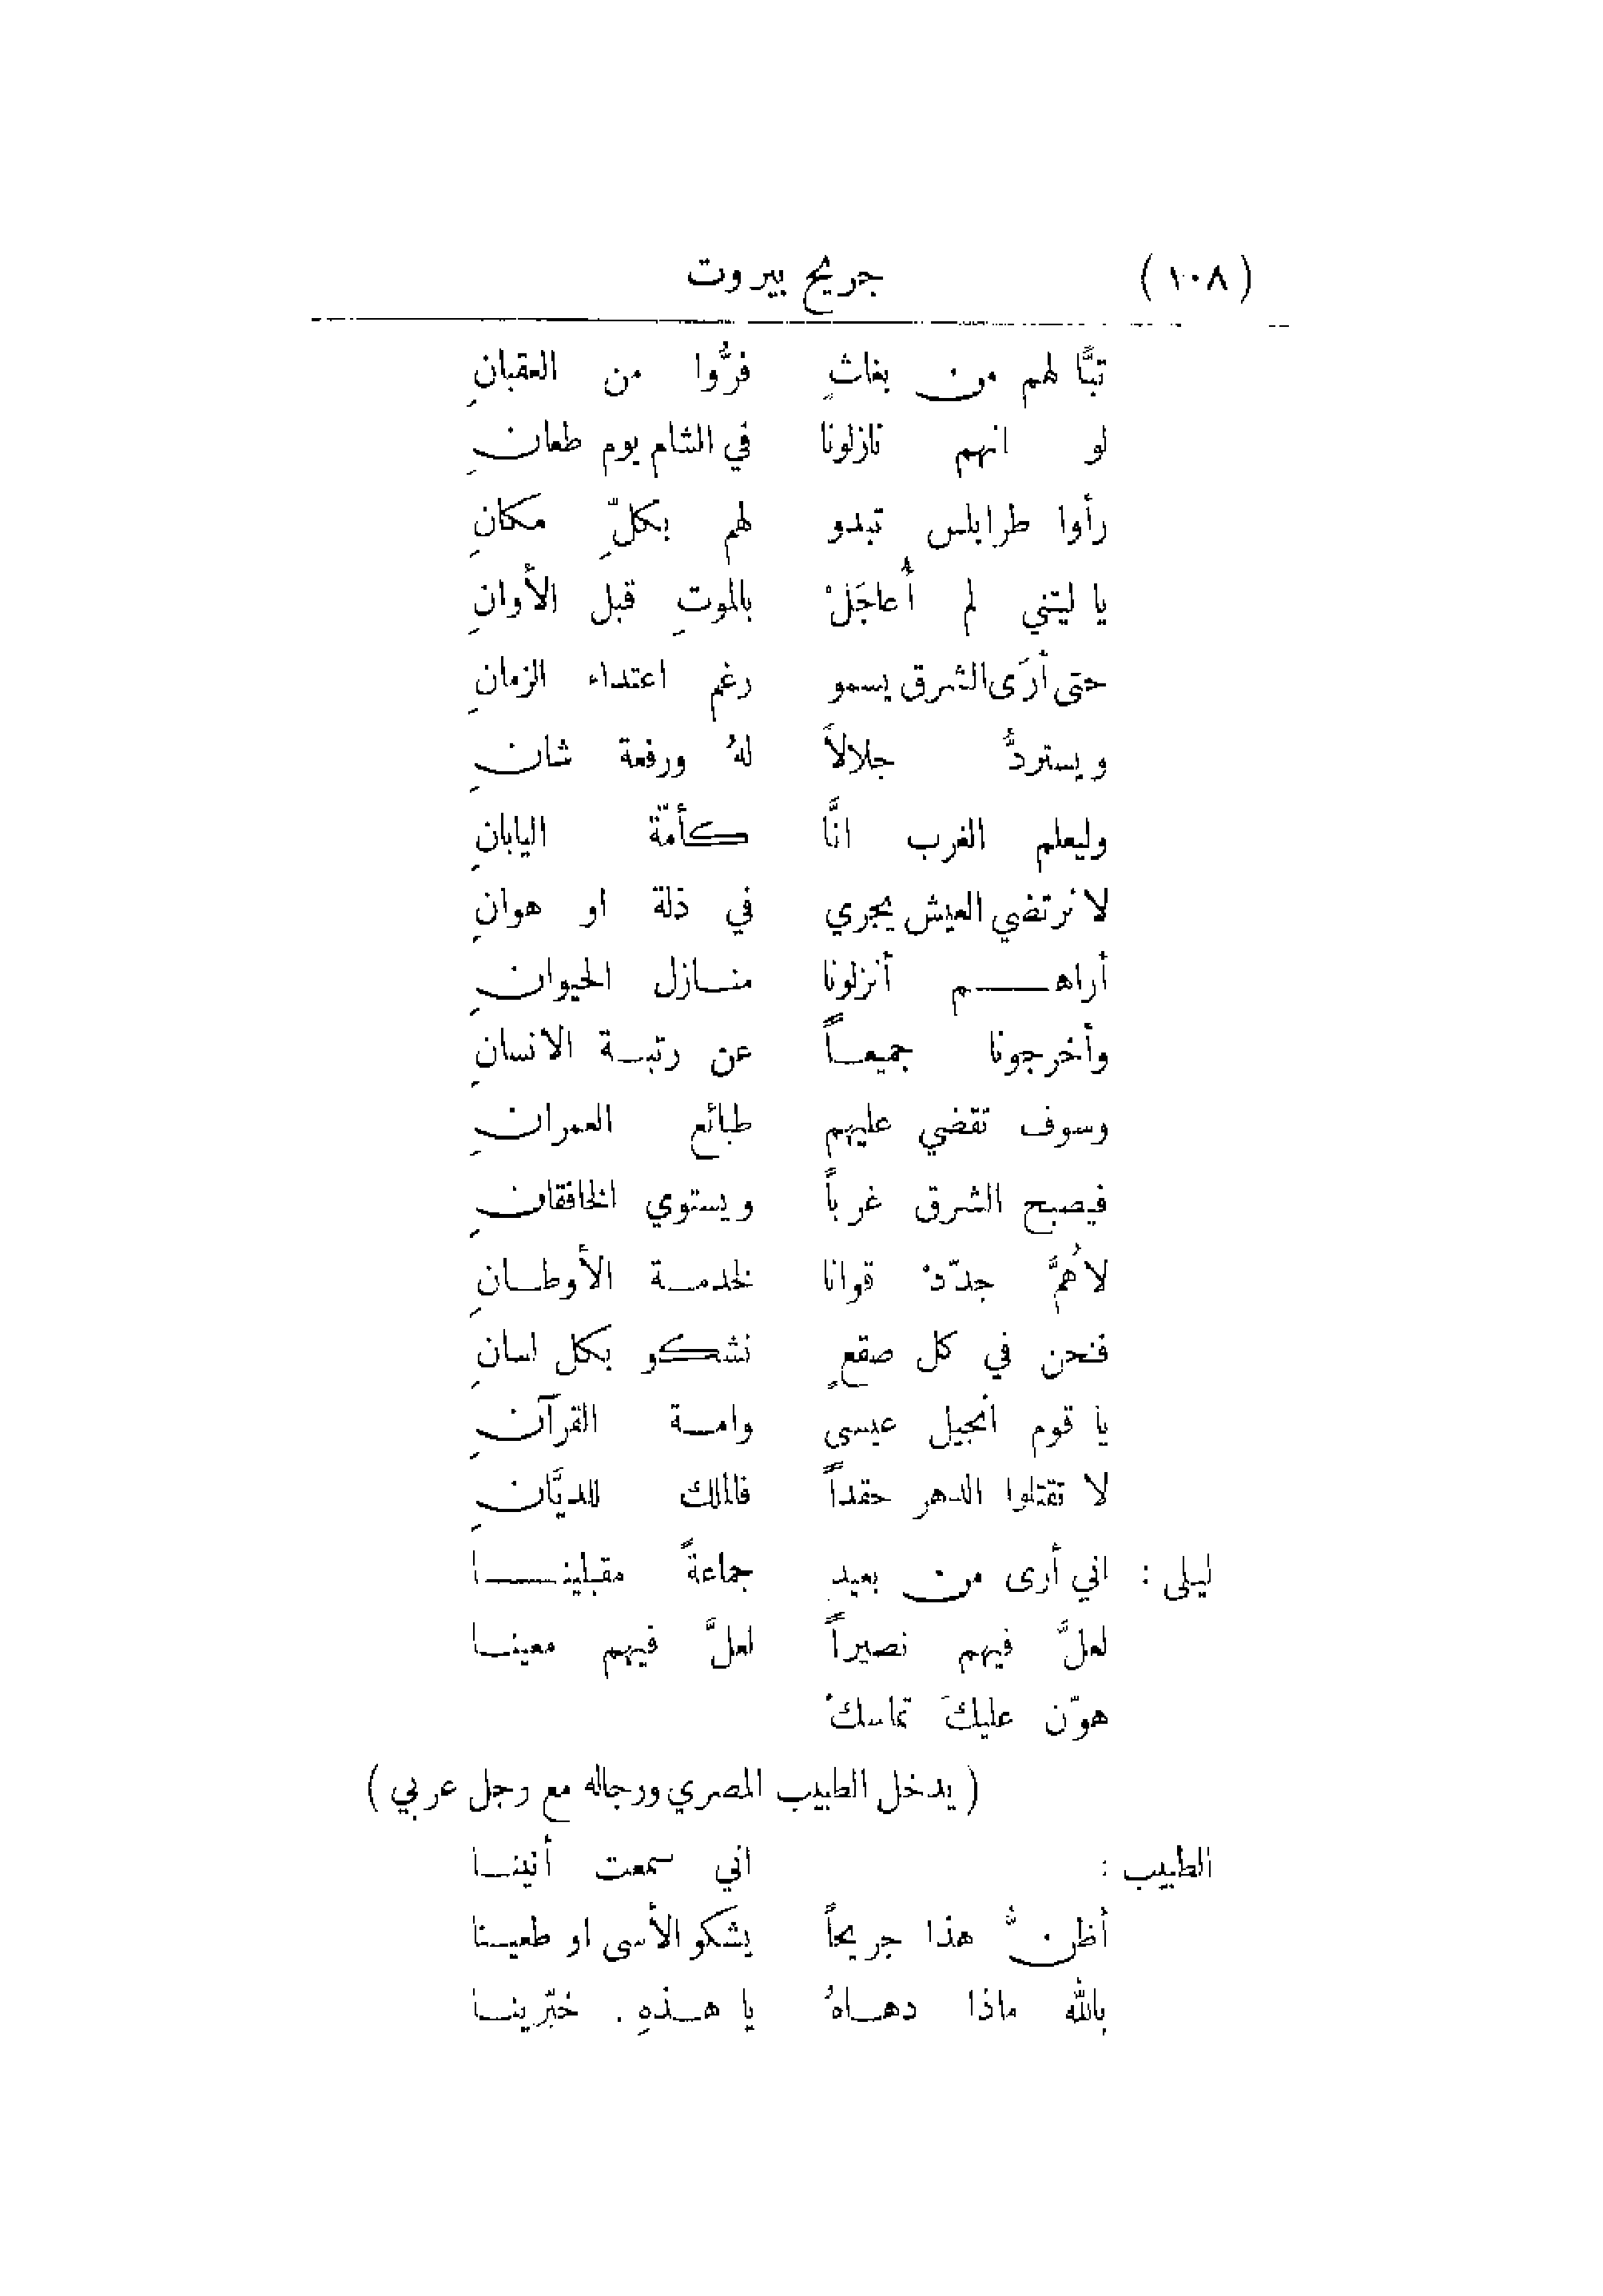 (١٠٨) جريح بيروت
تبًّا لهم من بغاثٍ فرُّوا من العقبانِ
لو انهم نازلونا في الشام يوم طعانِ
رأوا طرابلس تبدو لهم بكلِّ مكانِ
يا ليتني لم أُعاجَلْ بالموتِ قبل الأوانِ
حتى أرَى الشرق يسمو رغم اعتداء الزمانِ
ويستردُّ جلالاً لهُ ورفعة شانِ
وليعلم الغرب انَّا كأمّة اليابانِ
لا نرتضي العيش يجري في ذلة او هوانِ
أراهم أنزلونا منازل الحيوانِ
وأخرجونا جميعاً عن رتبة الانسانِ
وسوف تقضي عليهم طبائع العمرانِ
فيصبح الشرق غرباً ويستوي الخافقانِ
لاهُمَّ جدّدْ قوانا لخدمة الأوطانِ
فنحن في كل صقعٍ نشكو بكل لسانِ
يا قوم أنجيل عيسى وامة القرآنِ
لا تقتلوا الدهر حقداً فالملك للديَّانِ
ليلى : اني أرى من بعيد جماعةً مقبلينا
لعلَّ فيهم نصيراً لعلَّ فيهم معينا
هوّن عليكَ تماسكْ
( يدخل الطبيب المصري ورجاله مع رجل عربي )
الطبيب : اني سمعت أنينا
أظنُّ هذا جريحاً يشكو الأسى او طعينا
بالله ماذا دهاهُ يا هذهِ . خبّرينا